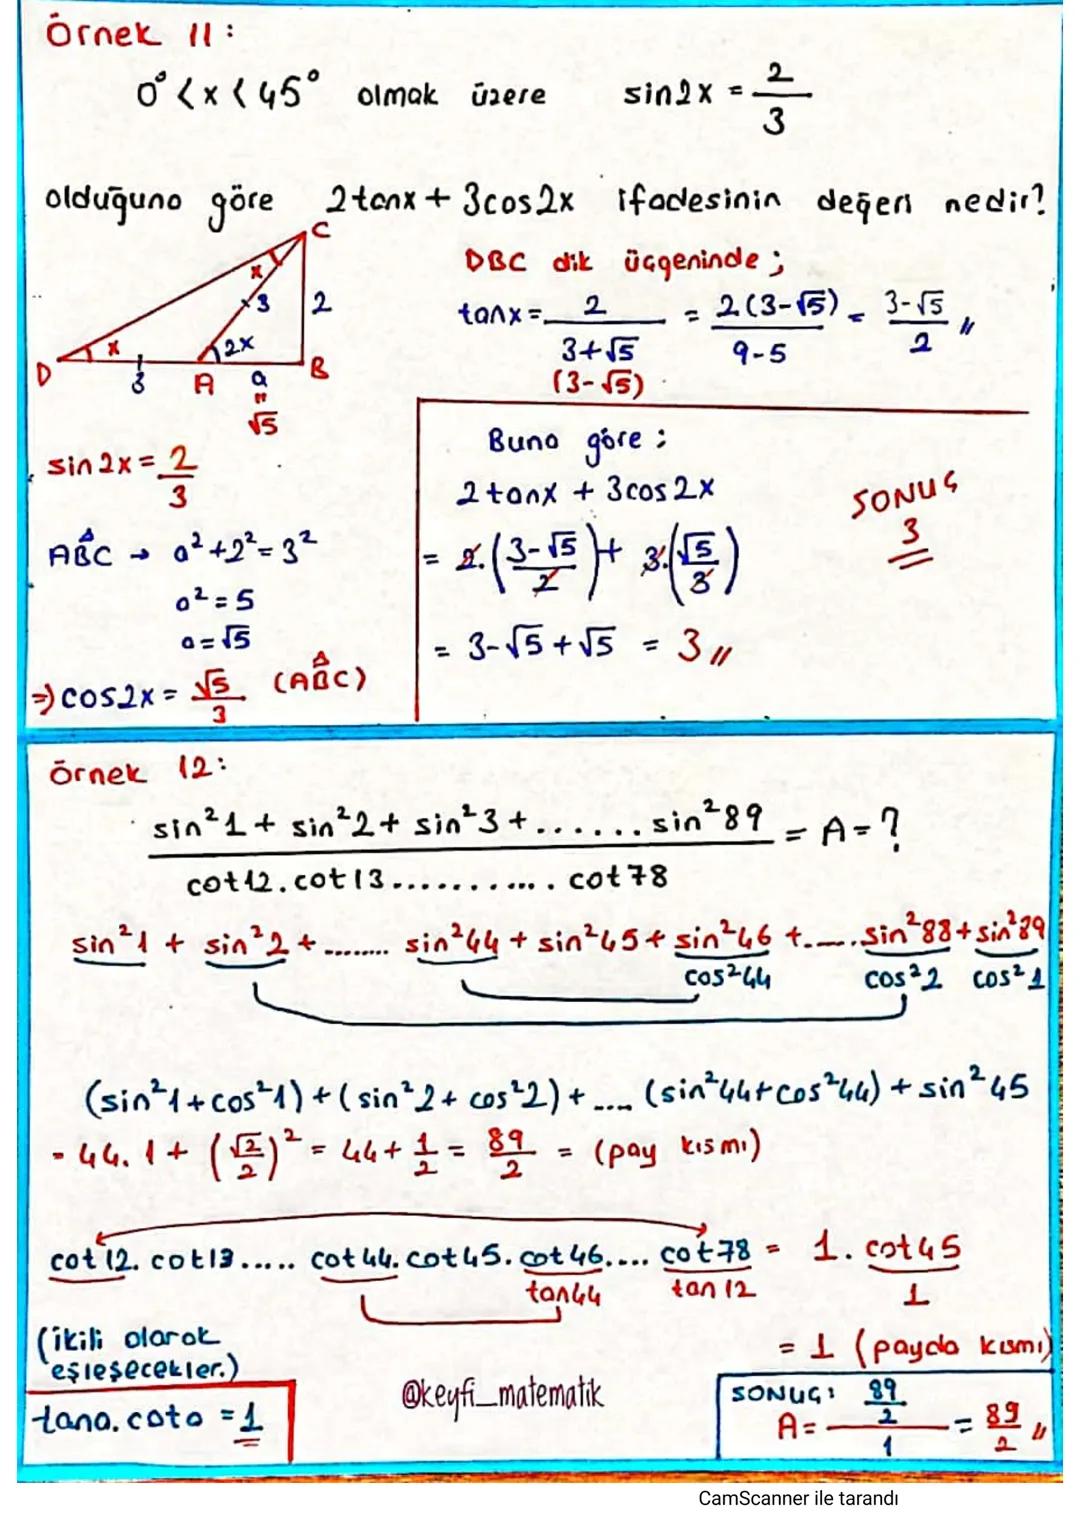 Örnek 11:
0° < x < 45° olmak üzere sin2x = 2/3
olduğuna göre 2tanx + 3cos2x ifadesinin değeri nedir?
C
x
3
2
x
2x
D
3
A
a
B
"
√5
DBC dik üçgeninde ;
tanx = 2/(3+√5) = 2(3-√5)/(9-5) = (3-√5)/2 //
(3-√5)
sin2x = 2/3
ABC → a²+2²=3²
a²=5
a=√5
⇒ cos2x = √5/3 (ABC)
Buna göre :
2tanx + 3cos2x
= 2.((3-√5)/2) + 3.(√5/3)
= 3-√5+√5 = 3 //
SONUÇ
3
Örnek 12:
(sin²1 + sin²2 + sin²3 + ....... sin²89)/(cot12.cot13........... cot78) = A = ?
sin²1 + sin²2 + ........ sin²44 + sin²45 + sin²46 + ..... sin²88 + sin²89
cos²44 cos²2 cos²1
(sin²1+cos²1) + (sin²2+cos²2) + .... (sin²44+cos²44) + sin²45
= 44.1 + (√2/2)² = 44 + 1/2 = 89/2 = (pay kısmı)
cot12.cot13..... cot44.cot45.cot46.... cot78 = 1.cot45
tan44 tan12 1
(ikili olarak
eşleşecekler.)
= 1 (payda kısmı)
tana.cota = 1
@keyfi_matematik
SONUÇ:
A = (89/2)/1 = 89/2 //
CamScanner ile tarandı